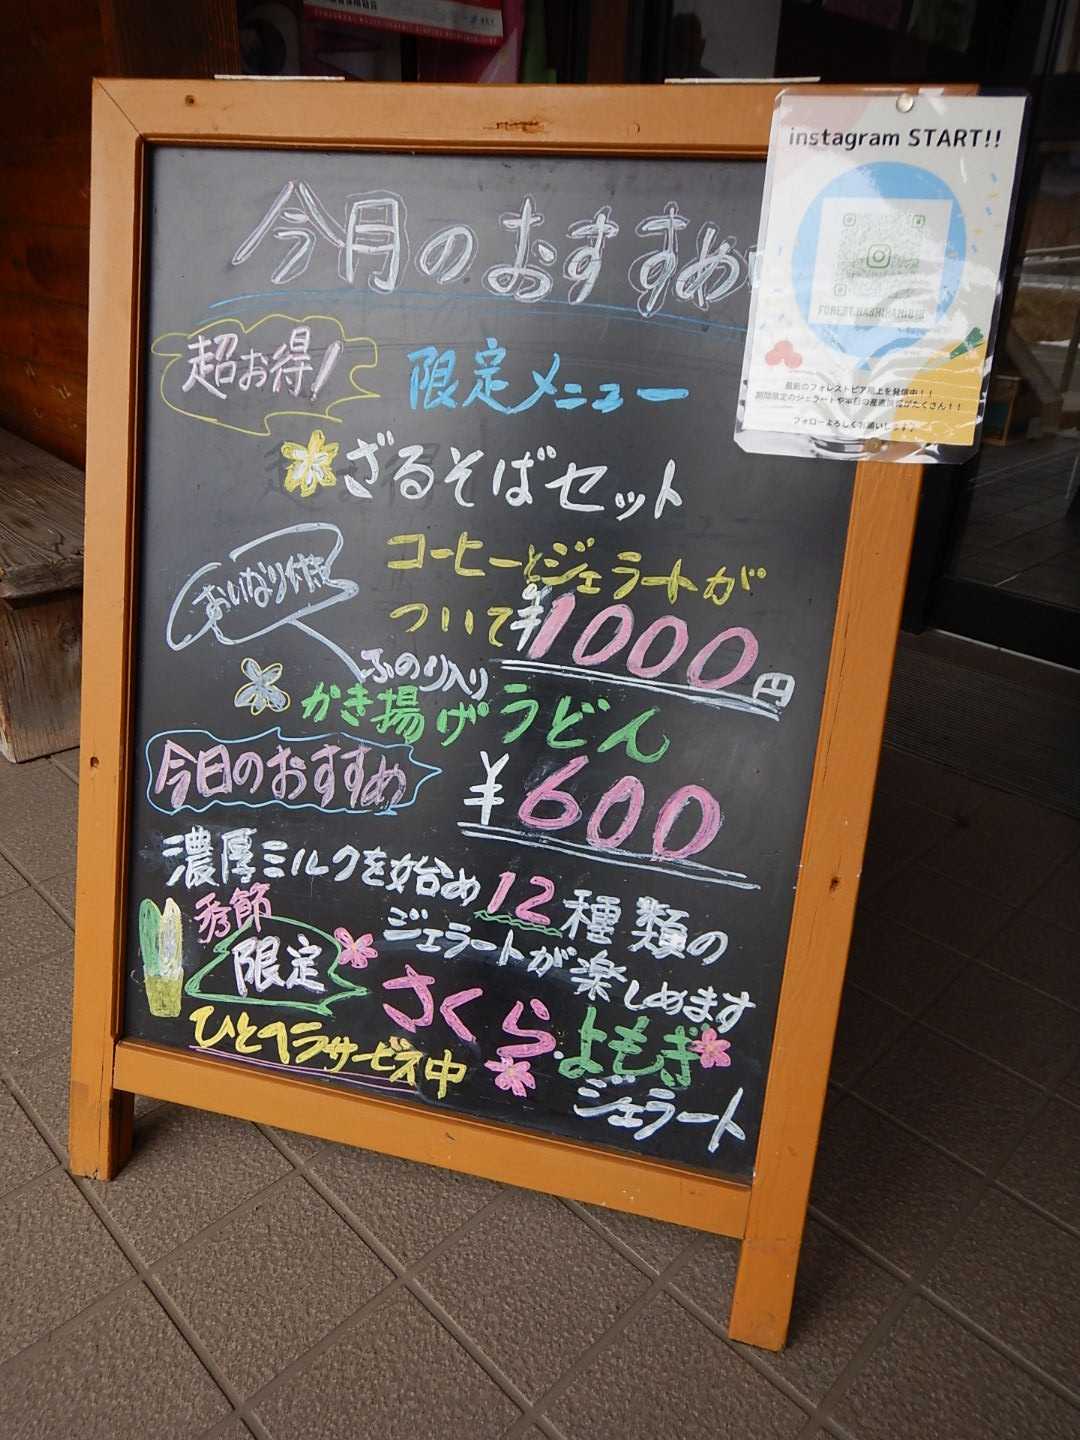 今月のおすすめ
instagram START!!
FOREST.HASHIKAMI.018
最新のフォレストピア階上を発信中!!
期間限定のジェラートや本日の産直情報がたくさん!!
フォローよろしくお願いします
超お得!
限定メニュー
ざるそばセット
おいなり付き
コーヒーとジェラートが
ついて¥1000円
ふのり入り
かき揚げうどん
今日のおすすめ
¥600
濃厚ミルクを始め12種類の
ジェラートが楽しめます
季節
限定
さくら・よもぎ
ジェラート
ひとヘラサービス中